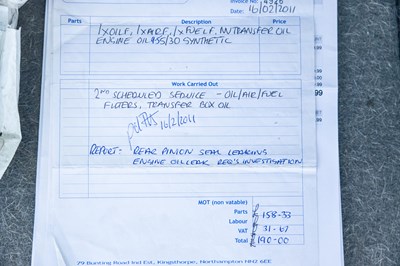 Invoice No: 4926
Date: 16/02/2011
Parts Description Price
1xOILF, 1xAIRF, 1xFUELF, TRANSFER OIL
ENGINE OIL 5/30 SYNTHETIC
Work Carried Out
2ND SCHEDULED SERVICE - OIL/AIR/FUEL
FILTERS, TRANSFER BOX OIL
16/2/2011
REPORT:- REAR PINION SEAL LEAKING
ENGINE OIL LEAK REQ'S INVESTIGATION
MOT (non vatable)
Parts £158-33
Labour
VAT 31-67
Total £190-00
79 Bunting Road Ind Est, Kingsthorpe, Northampton NN2 6EE